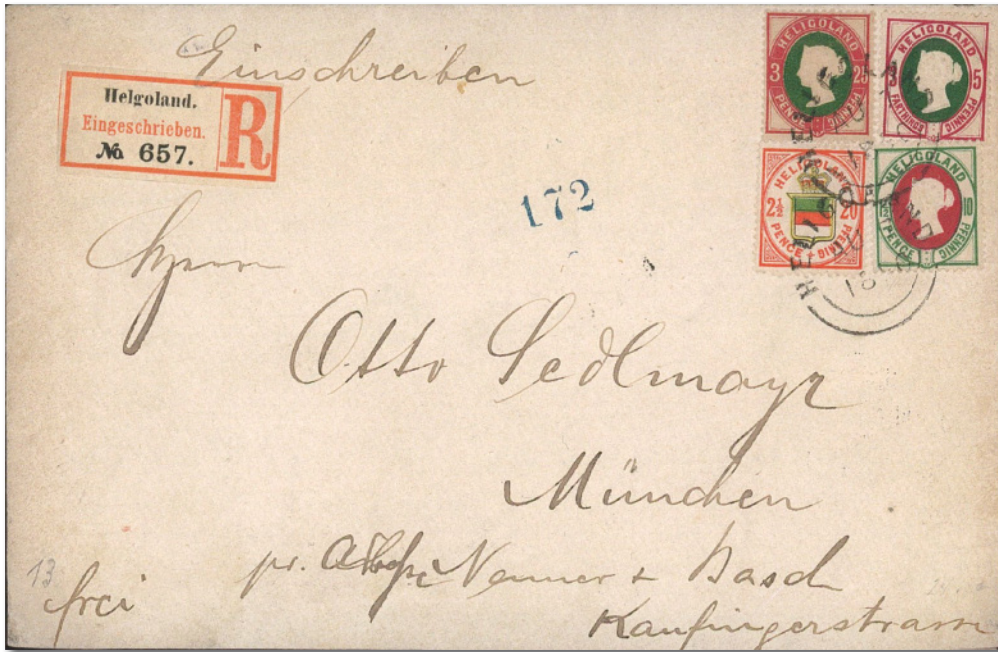 Einschreiben
Helgoland.
Eingeschrieben.
№ 657.
R
HELIGOLAND
3 25
PENCE PFENNIG
HELIGOLAND
5
FARTHINGS PFENNIG
HELIGOLAND
2½ 20
PENCE PFENNIG
HELIGOLAND
10
PENCE PFENNIG
HELIGOLAND
172
Herrn
Otto Sedlmayr
München
pr.
frei
13
Kaufingerstrasse